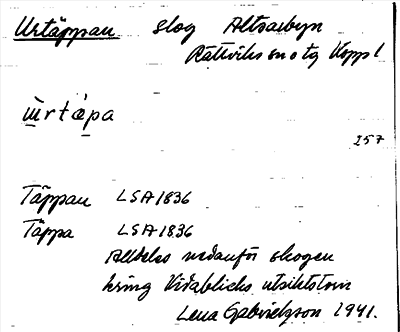 Urtäppan skog Altsarbyn
Rättviks sn o tg Koppl
ùrtæpa
257
Täppan LSA 1836
Täppa LSA 1836
Alldeles nedanför skogen
kring Vidablicks utsiktstorn
Lena Gabrielsson 1941.